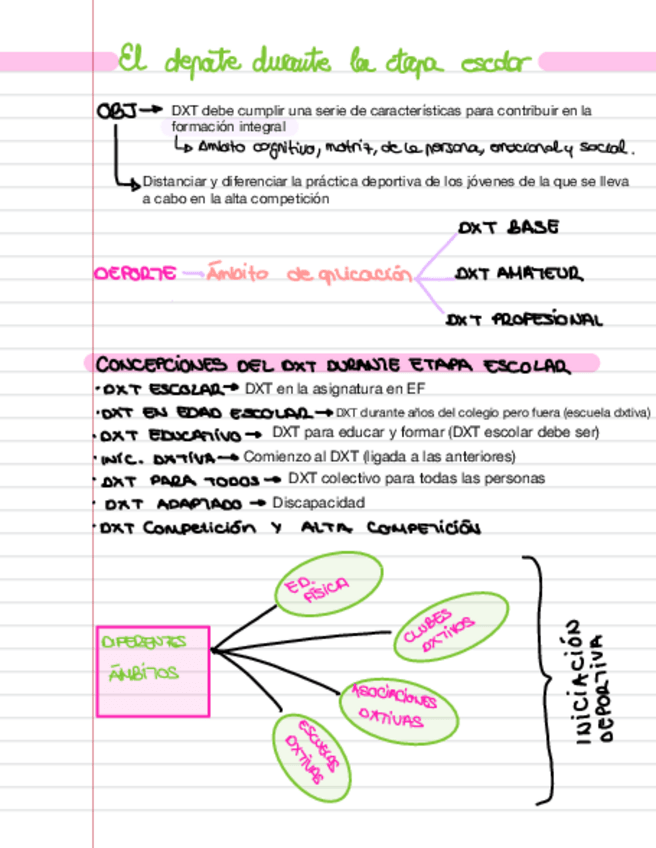 El deporte durante la etapa escolar
OBJ → DXT debe cumplir una serie de características para contribuir en la
formación integral
↳ Ámbito cognitivo, motriz, de la persona, emocional y social.
Distanciar y diferenciar la práctica deportiva de los jóvenes de la que se lleva
a cabo en la alta competición
DXT BASE
DEPORTE — Ámbito de aplicación
DXT AMATEUR
DXT PROFESIONAL
CONCEPCIONES DEL DXT DURANTE ETAPA ESCOLAR
· DXT ESCOLAR → DXT en la asignatura en EF
· DXT EN EDAD ESCOLAR → DXT durante años del colegio pero fuera (escuela dxtiva)
· DXT EDUCATIVO → DXT para educar y formar (DXT escolar debe ser)
· INIC. DXTIVA → Comienzo al DXT (ligada a las anteriores)
· DXT PARA TODOS → DXT colectivo para todas las personas
· DXT ADAPTADO → Discapacidad
· DXT Competición Y ALTA COMPETICIÓN
DIFERENTES
ÁMBITOS
ED.
FÍSICA
CLUBES
DXTIVOS
ASOCIACIONES
DXTIVAS
ESCUELAS
DXTIVAS
INICIACIÓN
DEPORTIVA